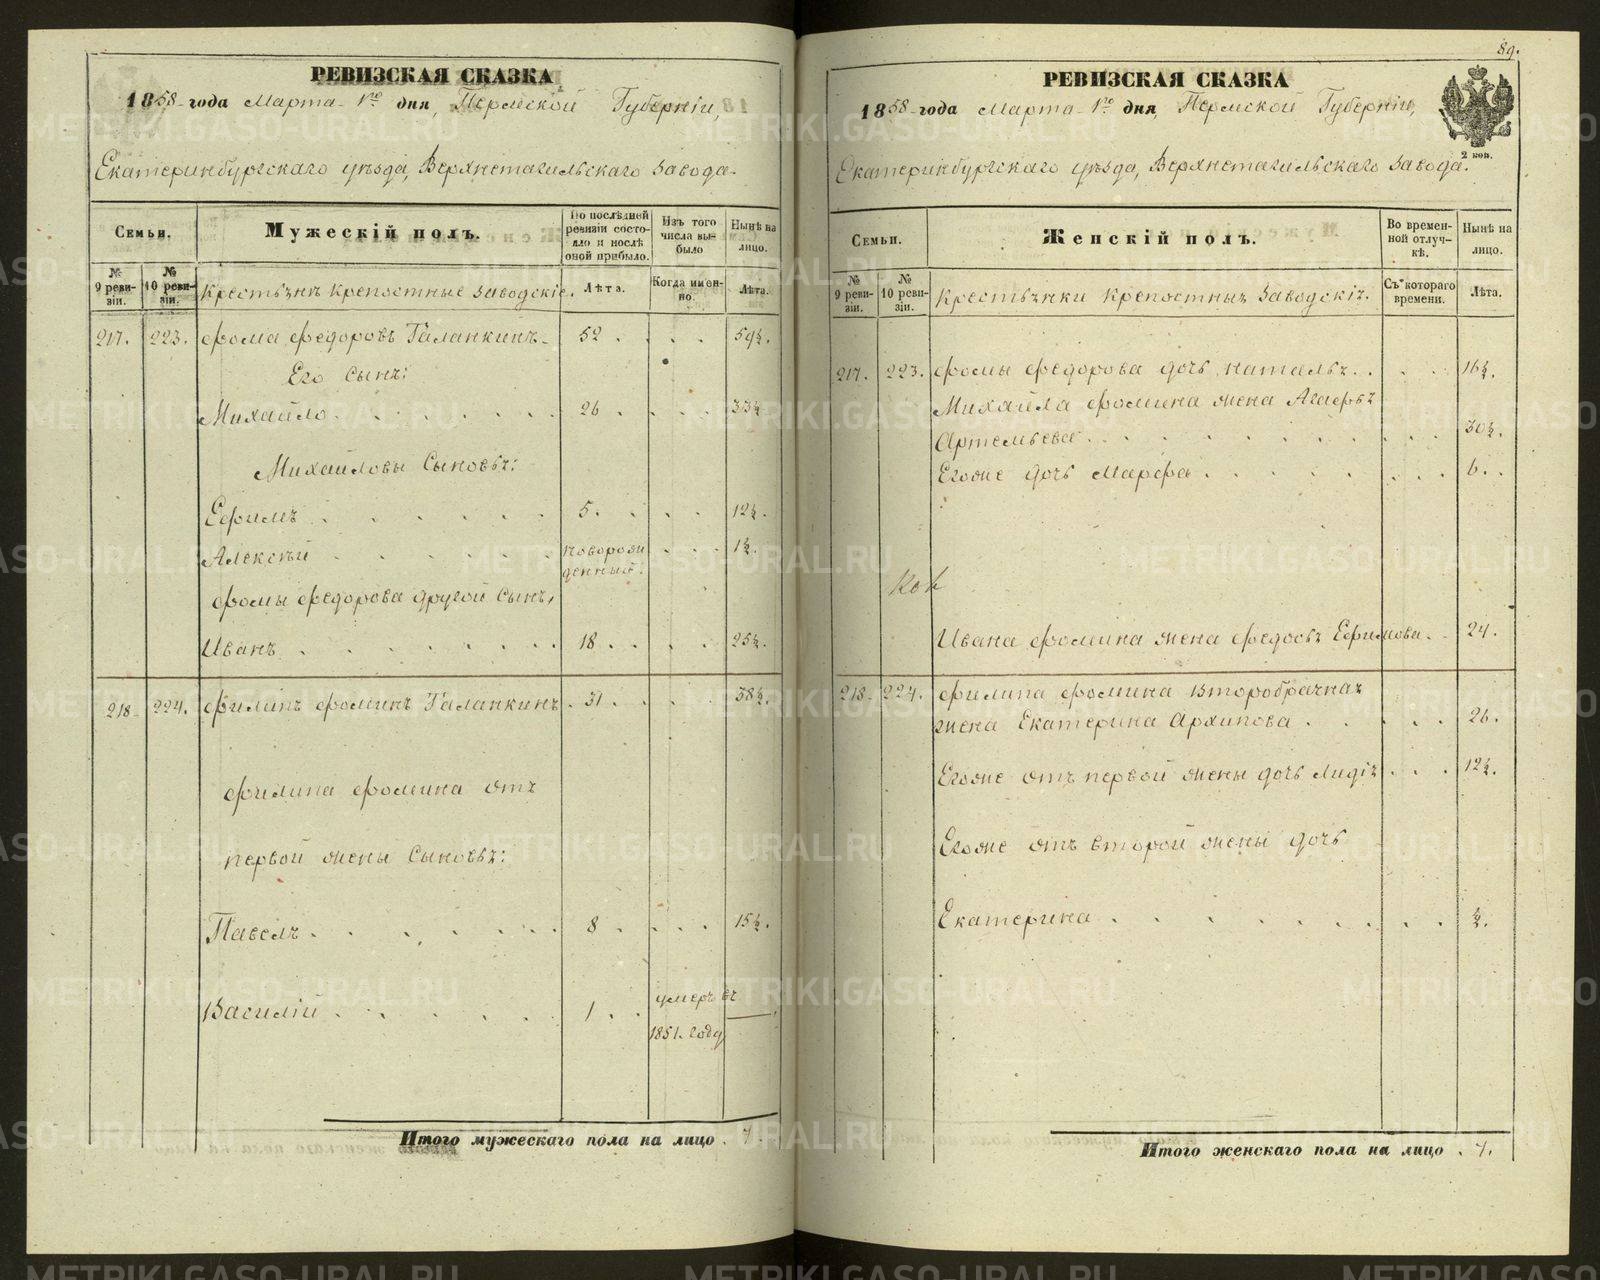 РЕВИЗСКАЯ СКАЗКА
1858 года Марта 1го дня, Пермской Губерніи,
Екатеринбургскаго уѣзда, Верхнетагильскаго завода.
Семьи.
Мужескій полъ.
По послѣдней ревизіи состояло и послѣ оной прибыло.
Изъ того числа выбыло
Нынѣ на лицо.
№ 9 ревизіи.
№ 10 ревизіи.
Крестьяне крепостные заводскіе.
Лѣта.
Когда именно.
Лѣта.
217. 223. Фома Федоровъ Галанкинъ 52 . . . 59½.
Его сынъ:
Михайло . . . . . . 26 . . . . 33½.
Михайловы сыновья:
Ефимъ . . . . . . 5. . . . 12½.
Алексѣй . . . . . . новорожденный. . . . 1½.
Фомы Федорова другой сынъ,
Иванъ . . . . . . . 18 . . . . 25½.
218. 224. Филипъ Фоминъ Галанкинъ . 31 . . . . 38½.
Филипа Фомина отъ
первой жены сыновья:
Павелъ . . . . . . 8 . . . . 15½.
Василій . . . . . . 1 . . умеръ въ
1851. году
Итого мужескаго пола на лицо . 7.
89.
РЕВИЗСКАЯ СКАЗКА
1858 года Марта 1го дня, Пермской Губерніи,
2 коп.
Екатеринбургскаго уѣзда, Верхнетагильскаго завода.
Семьи.
Женскій полъ.
Во временной отлучкѣ.
Нынѣ на лицо.
№ 9 ревизіи.
№ 10 ревизіи.
Крестьянки крепостныя заводскія.
Съ котораго времени.
Лѣта.
217. 223. Фомы Федорова дочь Наталья . . . . 16½.
Михайла Фомина жена Агафья
Артемьева . . . . . . . . . . 30½.
Егоже дочь Марфа . . . . . . . . 6. .
Ивана Фомина жена Федосья Ефимова. . 24.
218. 224. Филипа Фомина второбрачная
жена Екатерина Архипова . . . . . 26.
Егоже отъ первой жены дочь Лидія . . . 12½.
Егоже отъ второй жены дочь
Екатерина . . . . . . . . . ½.
Итого женскаго пола на лицо . 7.
METRIKI.GASO-URAL.RU